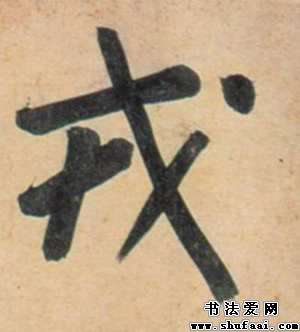 戎
书法爱网
www.shufaai.com